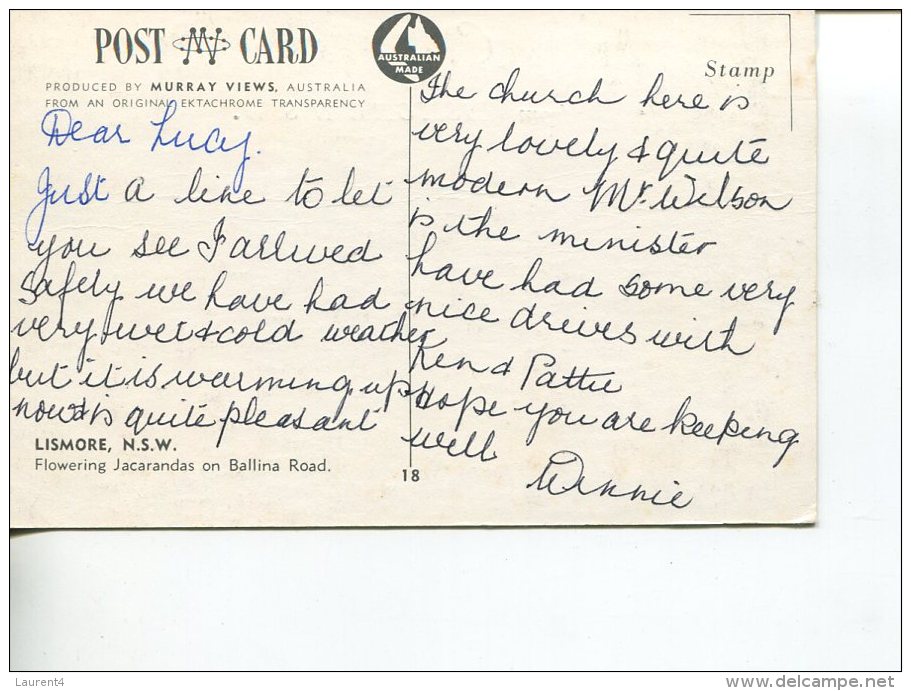 POST CARD
PRODUCED BY MURRAY VIEWS, AUSTRALIA
FROM AN ORIGINAL EKTACHROME TRANSPARENCY
AUSTRALIAN
MADE
Stamp
Dear Lucy.
Just a line to let
you see I arrived
safely we have had
very wet & cold weather
but it is warming up
now & is quite pleasant
LISMORE, N.S.W.
Flowering Jacarandas on Ballina Road.
18
The church here is
very lovely & quite
modern Mr. Wilson
is the minister
have had some very
nice drives with
Ken & Pattie
Hope you are keeping
well
Winnie
Laurent4
www.delcampe.net